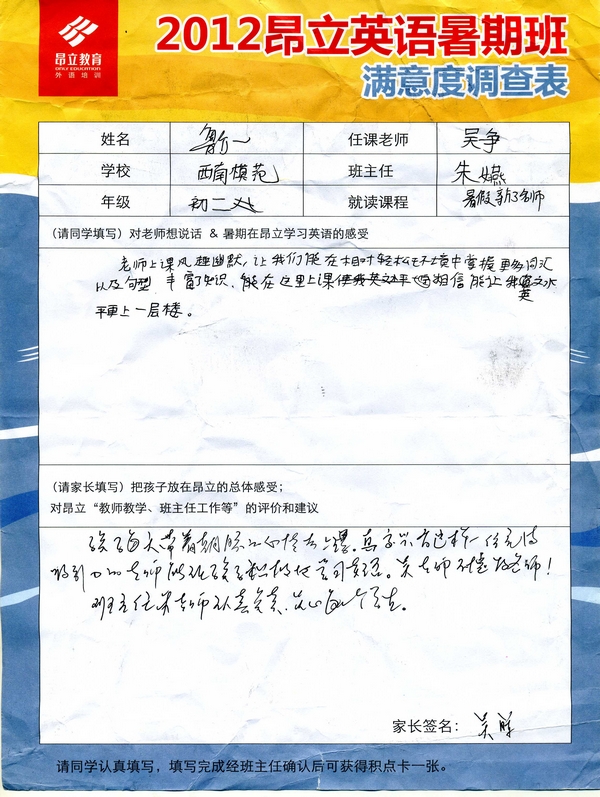 昂立教育
ONLY EDUCATION
外语培训
2012昂立英语暑期班
满意度调查表
姓名 任课老师 吴争
学校 西南模范 班主任 朱嬿
年级 初二 就读课程 暑假新3名师
(请同学填写) 对老师想说话 & 暑期在昂立学习英语的感受
老师上课风趣幽默,让我们能在相对轻松环境中掌握更多词汇
以及句型 丰富了知识、能在这里上课 相信能让我英文水
平更上一层楼。
(请家长填写) 把孩子放在昂立的总体感受;
对昂立“教师教学、班主任工作等”的评价和建议
孩子每天带着期盼的心情去上课。真高兴有这样一位充满
吸引力的老师能让孩子积极地学习英语。吴老师不愧好老师!
班主任朱老师认真负责,关心每个学生。
家长签名:
请同学认真填写,填写完成经班主任确认后可获得积点卡一张。